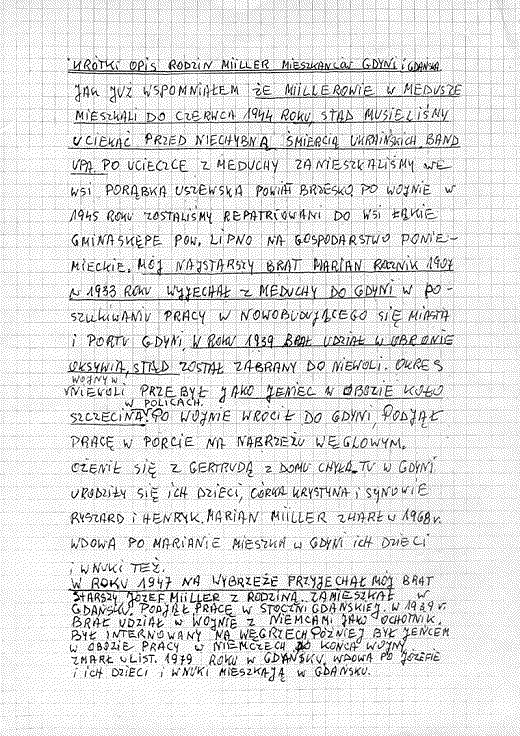 KRÓTKI OPIS RODZIN MÜLLER MIESZKAŃCÓW GDYNI i GDAŃSKA
JAK JUŻ WSPOMNIAŁEM ŻE MÜLLEROWIE W MEDUSZE
MIESZKALI DO CZERWCA 1944 ROKU, STĄD MUSIELIŚMY
UCIEKAĆ PRZED NIECHYBNĄ ŚMIERCIĄ UKRAIŃSKICH BAND
UPA, PO UCIECZCE Z MEDUCHY ZAMIESZKALIŚMY WE
WSI PORĄBKA USZEWSKA POWIAT BRZESKO, PO WOJNIE W
1945 ROKU ZOSTALIŚMY REPATRIOWANI DO WSI ŁĄKIE
GMINA SKĘPE POW. LIPNO NA GOSPODARSTWO PONIE-
MIECKIE. MÓJ NAJSTARSZY BRAT MARIAN ROCZNIK 1907
W 1933 ROKU WYJECHAŁ Z MEDUCHY DO GDYNI W PO-
SZUKIWANIU PRACY W NOWOBUDUJĄCEGO SIĘ MIASTA
i PORTU GDYNI W ROKU 1939 BRAŁ UDZIAŁ W OBRONIE
OKSYWIA, STĄD ZOSTAŁ ZABRANY DO NIEWOLI. OKRES
WOJNY W
NIEWOLI PRZEBYŁ JAKO JENIEC W OBOZIE KOŁO
W POLICACH.
SZCZECINA, PO WOJNIE WRÓCIŁ DO GDYNI, PODJĄŁ
PRACĘ W PORCIE NA NABRZEŻU WĘGLOWYM.
OŻENIŁ SIĘ Z GERTRUDĄ Z DOMU CHYŁA, TU W GDYNI
URODZIŁY SIĘ ICH DZIECI, CÓRKA KRYSTYNA i SYNOWIE
RYSZARD i HENRYK. MARIAN MÜLLER ZMARŁ W 1968r.
WDOWA PO MARIANIE MIESZKA W GDYNI ICH DZIECI
i WNUKI TEŻ.
W ROKU 1947 NA WYBRZEŻE PRZYJECHAŁ MÓJ BRAT
STARSZY JÓZEF MÜLLER Z RODZINĄ. ZAMIESZKAŁ W
GDAŃSKU. PODJĄŁ PRACĘ W STOCZNI GDAŃSKIEJ. W 1939 r.
BRAŁ UDZIAŁ W WOJNIE Z NIEMCAMI JAKO OCHOTNIK.
BYŁ INTERNOWANY NA WĘGRZECH PÓŹNIEJ BYŁ JEŃCEM
W OBOZIE PRACY W NIEMCZECH DO KOŃCA WOJNY.
ZMARŁ W LIST. 1979 ROKU W GDAŃSKU, WDOWA PO JÓZEFIE
i ICH DZIECI i WNUKI MIESZKAJĄ W GDAŃSKU.